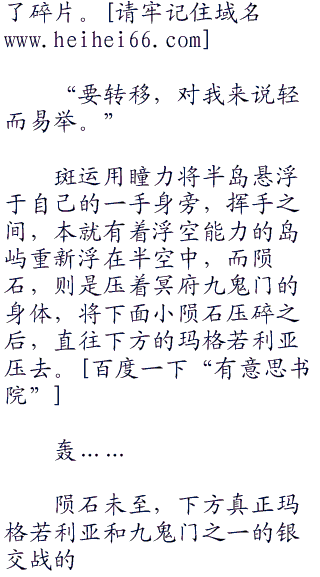 了碎片。[请牢记住域名
www.heihei66.com]
“要转移，对我来说轻
而易举。”
斑运用瞳力将半岛悬浮
于自己的一手身旁，挥手之
间，本就有着浮空能力的岛
屿重新浮在半空中，而陨
石，则是压着冥府九鬼门的
身体，将下面小陨石压碎之
后，直往下方的玛格若利亚
压去。[百度一下“有意思书
院”]
轰……
陨石未至，下方真正玛
格若利亚和九鬼门之一的银
交战的